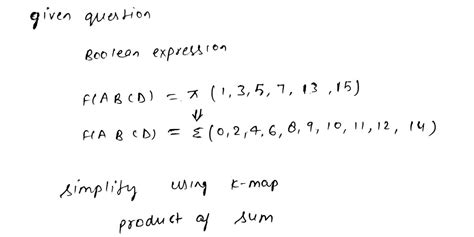 given question
Boolean expression
F(ABCD) = π (1,3,5,7, 13, 15)
⇓
F(ABCD) = Σ(0,2,4,6,8,9,10,11,12, 14)
simplify using k-map
product of sum